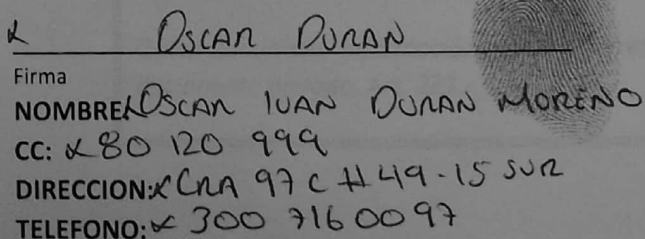 x Oscar Duran
Firma
NOMBRE:x Oscar Ivan Duran Moreno
CC: x 80 120 999
DIRECCION:x Cra 97 C # 49-15 sur
TELEFONO: x 300 716 0097